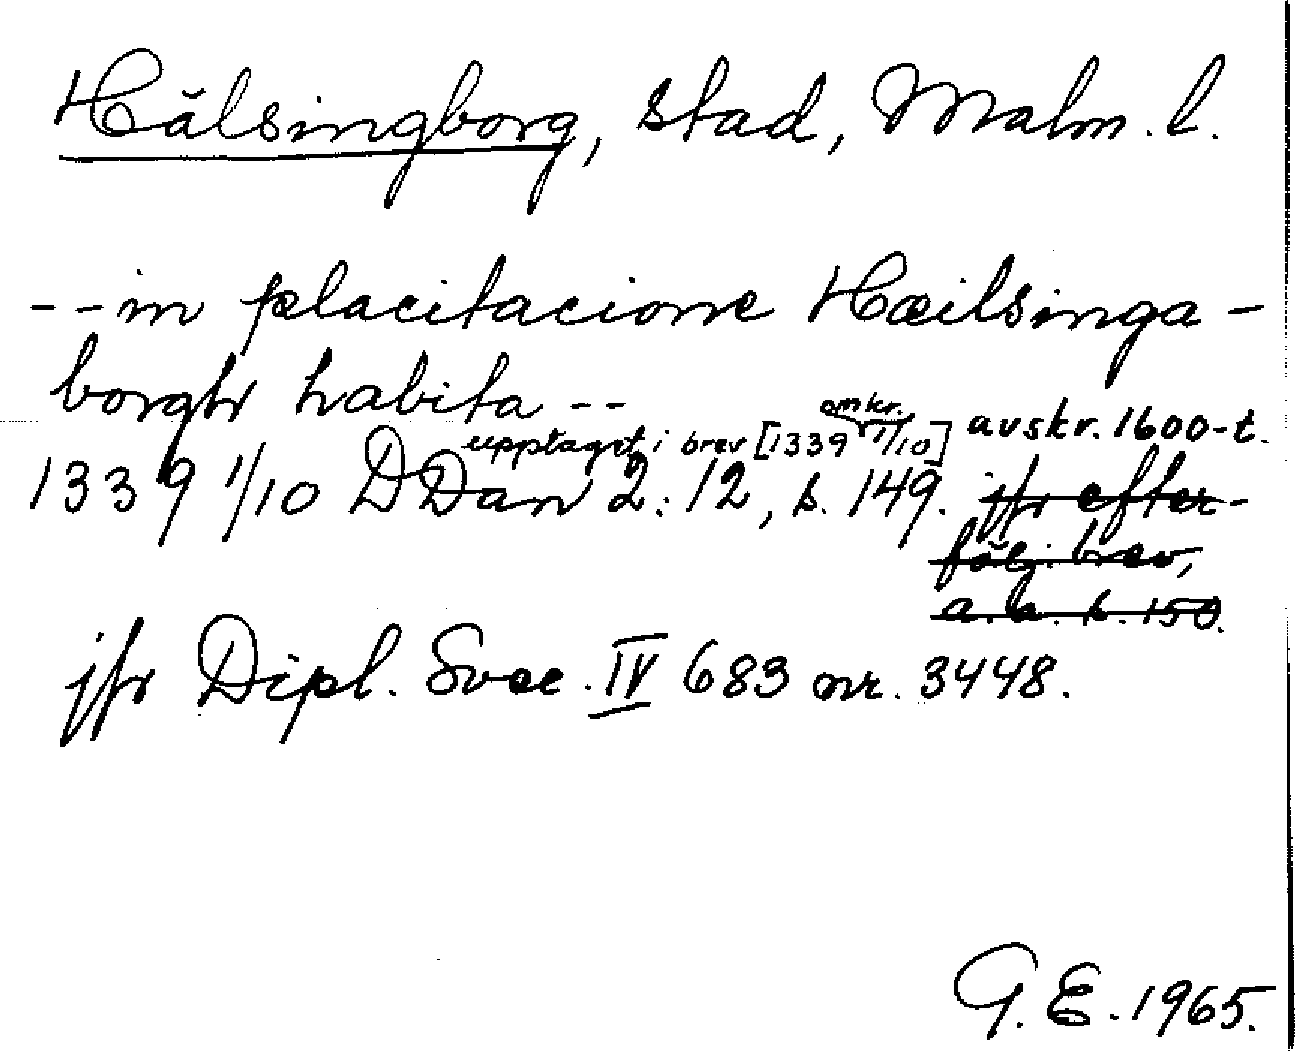 Hälsingborg, stad, Malm. l.
-- in placitacione Hæilsinga-
borghr habita --
upptaget i brev [1339 omkr. 1/10] avskr. 1600-t.
1339 1/10 DDan 2:12, s. 149. jfr efter-
följ. brev,
a. a. s. 150.
jfr Dipl. Svec. IV 683 nr. 3448.
G. E. 1965.